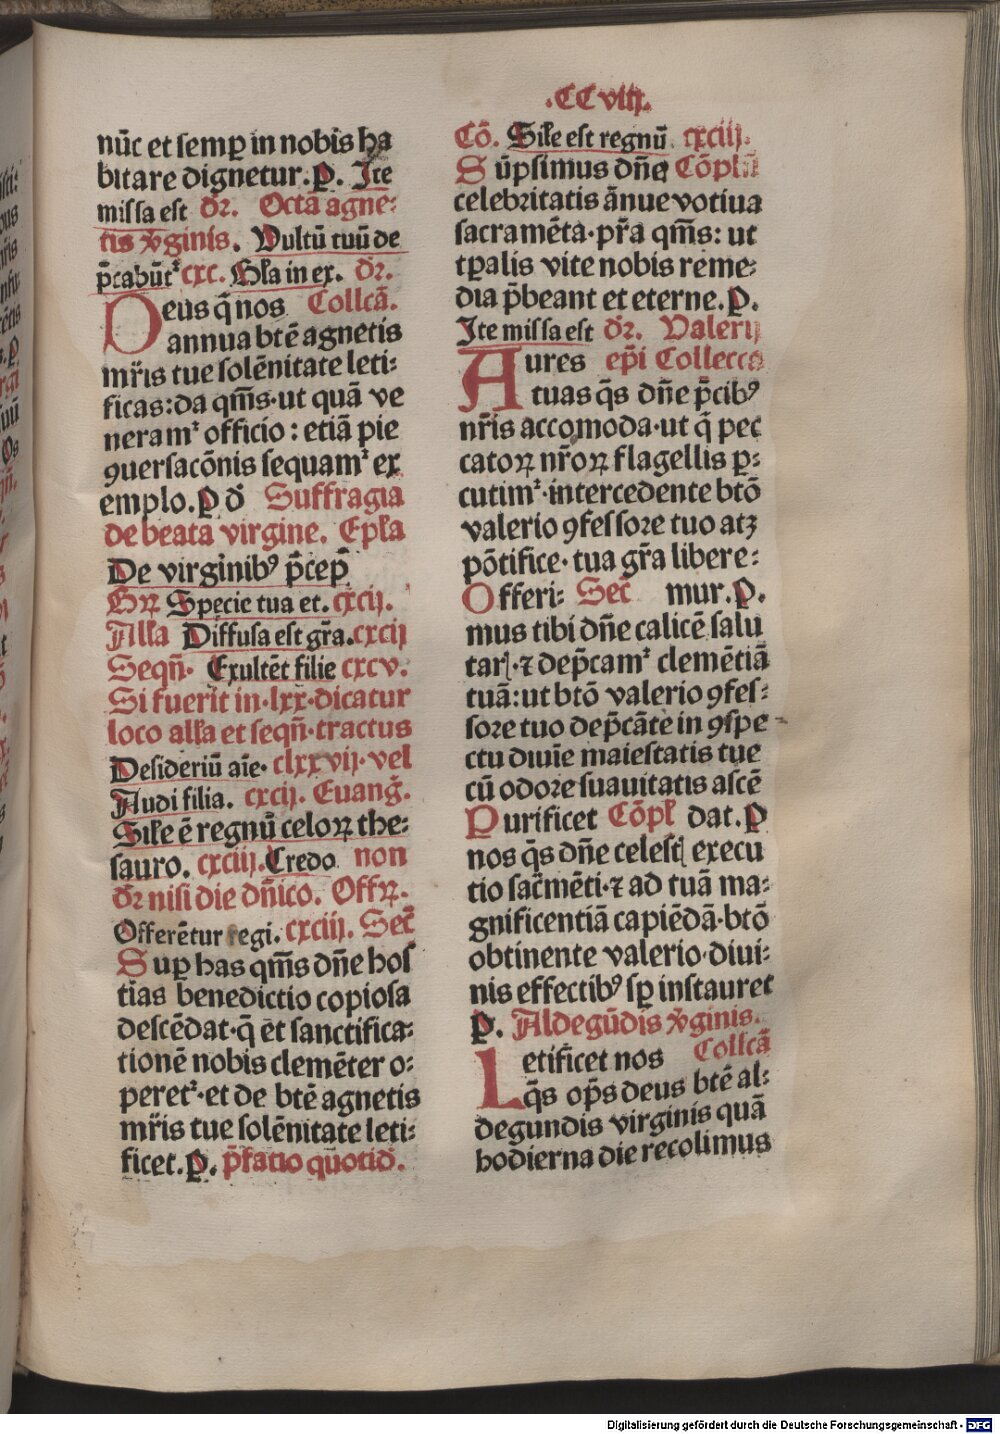 .CCviij.
nūc et semꝑ in nobis ha
bitare dignetur. P. Ite
missa est dr̄. Octā agne⸗
tis v̄ginis. Vultū tuū de
p̄cabūtᷣ cxc. Gl̄a in ex. dr̄.
Deus q̄ nos Collcā.
annua btē agnetis
mr̄is tue solēnitate leti⸗
ficas: da qm̄s·ut quā ve
neramᷣ officio: etiā pie
ꝯuersacōnis sequamᷣ ex
emplo. P d̄ Suffragia
de beata virgine. Epl̄a
De virginibꝰ p̄cep̄
Grꝝ Specie tua et. cxcij.
All̄a Diffusa est gr̄a. cxcij
Seqn̄. Exultēt filie cxcv.
Si fuerit in·lxx·dicatur
loco all̄a et seqn̄·tractus
Desideriū aīe. clxxvij. vel
Audi filia. cxcij. Euanḡ.
Sil̄e ē regnū celoꝝ the⸗
sauro. cxciij. Credo non
dr̄ nisi die dn̄ico. Offꝝ.
Offerētur regi. cxciij. Sec̄
Suꝑ has qm̄s dn̄e hos
tias benedictio copiosa
descēdat·q̄ et sanctifica⸗
tionē nobis clemēter o⸗
peretᷣ·et de btē agnetis
mr̄is tue solēnitate leti⸗
ficet. P. p̄fatio quotid̄.
Cō. Sil̄e est regnū cxciij.
Sūpsimus dn̄e Cōpl̄
celebritatis ānue votiua
sacramēta·pr̄a qm̄s: ut
tꝑalis vite nobis reme⸗
dia p̄beant et eterne. P.
Ite missa est dr̄. Valerij
Aures ep̄i Collecta
tuas q̄s dn̄e p̄cibꝰ
nr̄is accomoda·ut q̄ pec
catoꝝ nr̄oꝝ flagellis ꝑ⸗
cutimᷣ·intercedente btō
valerio ꝯfessore tuo atꝫ
pōtifice·tua gr̄a libere⸗
Offeri⸗ Sec̄ mur. P.
mus tibi dn̄e calicē salu
tarꝭ·⁊ dep̄camᷣ clemētiā
tuā: ut btō valerio ꝯfes⸗
sore tuo dep̄cāte in ꝯspe
ctu diuīe maiestatis tue
cū odore suauitatis ascē
Purificet Cōpl̄ dat. P
nos q̄s dn̄e celestꝭ execu
tio sac̄mēti·⁊ ad tuā ma⸗
gnificentiā capiēdā·btō
obtinente valerio·diui⸗
nis effectibꝰ sꝑ instauret
P. Aldegūdis v̄ginis.
Letificet nos Collcā
q̄s op̄s deus btē al⸗
degundis virginis quā
hodierna die recolimus
Digitalisierung gefördert durch die Deutsche Forschungsgemeinschaft - DFG